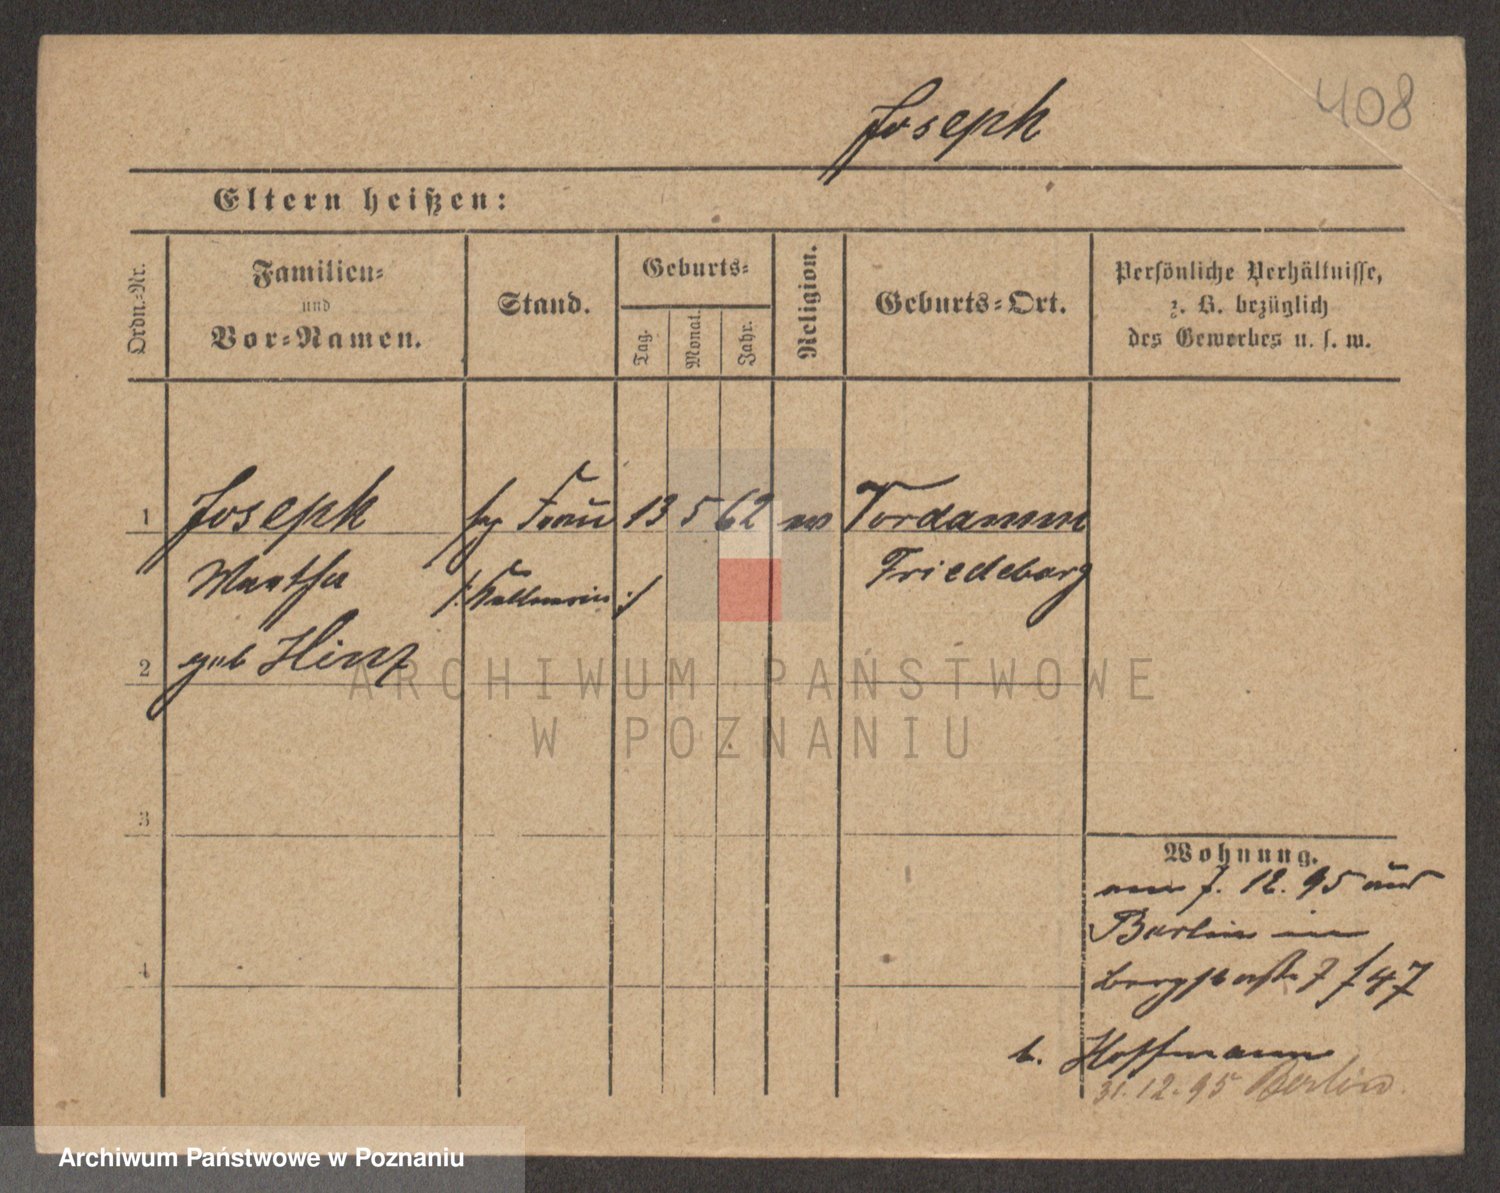 408
Joseph
Eltern heißen:
Ordn.-Nr.
Familien-
und
Vor-Namen.
Stand.
Geburts-
Tag.
Monat.
Jahr.
Religion.
Geburts-Ort.
Persönliche Verhältnisse,
z. B. bezüglich
des Gewerbes u. s. w.
1 Joseph Frau 13 5 62 Vordamm
Martha /: Kellnerin :/ Friedeberg
2 geb Hinz
3
4
Wohnung.
7. 12. 95 aus
Berlin in
Bergstraße 7 / 47
b. Hoffmann
31. 12. 95 Berlin.
ARCHIWUM PAŃSTWOWE
W POZNANIU
Archiwum Państwowe w Poznaniu